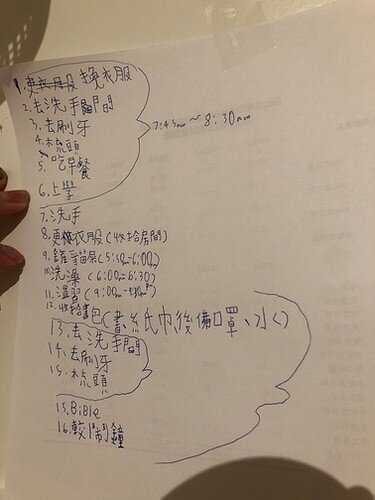 1. 更衣服 換衣服
2. 去洗手間
3. 去刷牙
4. 梳頭
5. 吃早餐
7:45am ~ 8:30am
6. 上學
7. 洗手
8. 更換衣服 (收拾房間)
9. 鏟貓屎 (5:50pm-6:00pm)
10. 洗澡 (6:00pm-6:30)
11. 溫習 (9:00pm-9:30pm)
12. 收拾書包 (書、紙巾、後備口罩、水)
13. 去洗手間
14. 去刷牙
15. 梳頭
15. Bible
16. 較鬧鐘